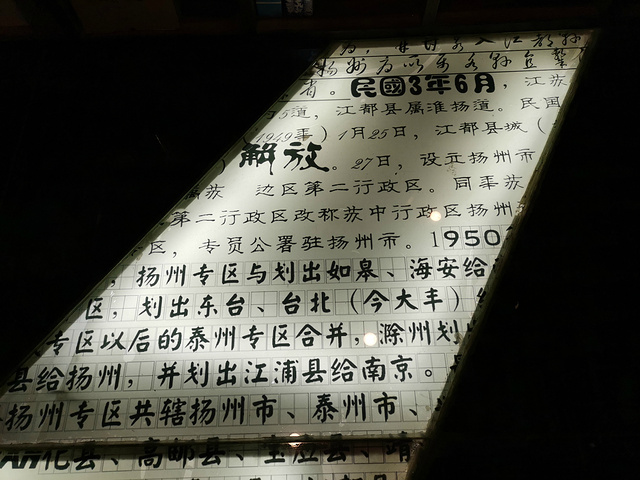 为，
扬州为
省。民國3年6月，江苏
5道，江都县属淮扬道。民国
1949年）1月25日，江都县城（
解放。27日，设立扬州市
属苏 边区第二行政区。同年苏
第二行政区改称苏中行政区扬州
区，专员公署驻扬州市。1950
，扬州专区与划出如皋、海安给
区，划出东台、台北（今大丰）
专区以后的泰州专区合并，滁州划
县给扬州，并划出江浦县给南京。
扬州专区共辖扬州市、泰州市、
化县、高邮县、宝应县、靖